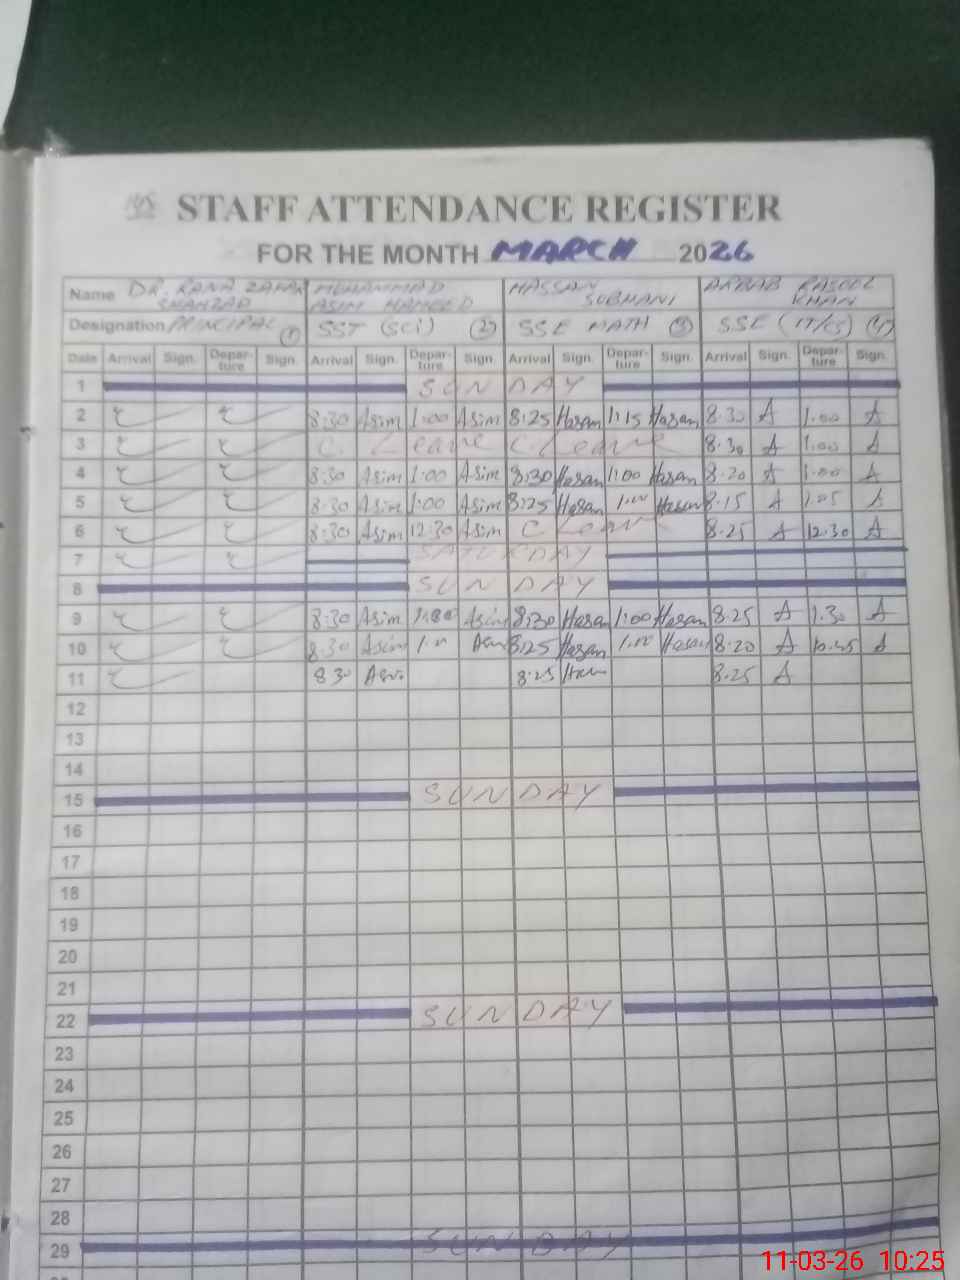 STAFF ATTENDANCE REGISTER
FOR THE MONTH MARCH 2026
Name DR. RANA ZAFAR SHAHZAD MUHAMMAD ASIM HAMEED HASSAN SUBHANI ARBAB RASOOL KHAN
Designation PRINCIPAL 1 SST (SCI) 2 SSE MATH 3 SSE (IT/CS) 4
Date Arrival Sign. Departure Sign. Arrival Sign. Departure Sign. Arrival Sign. Departure Sign. Arrival Sign. Departure Sign.
1 SUNDAY
2 8:30 Asim 1:00 Asim 8:25 Hasan 1:15 Hasan 8.30 A 1.00 A
3 C. Leave C. Leave 8.30 A 1.00 A
4 8:30 Asim 1:00 Asim 8:30 Hasan 1:00 Hasan 8.20 A 1.00 A
5 8:30 Asim 1:00 Asim 8:25 Hasan 1:00 Hasan 8.15 A 1.05 A
6 8:30 Asim 12:30 Asim C Leave 8.25 A 12.30 A
7 SATURDAY
8 SUNDAY
9 8:30 Asim 1:00 Asim 8:30 Hasan 1:00 Hasan 8.25 A 1.30 A
10 8.30 Asim 1.00 Asim 8:25 Hasan 1:00 Hasan 8.20 A 10.45 A
11 8 30 8:25 8.25 A
12
13
14
15 SUNDAY
16
17
18
19
20
21
22 SUNDAY
23
24
25
26
27
28
29 SUNDAY
11-03-26 10:25